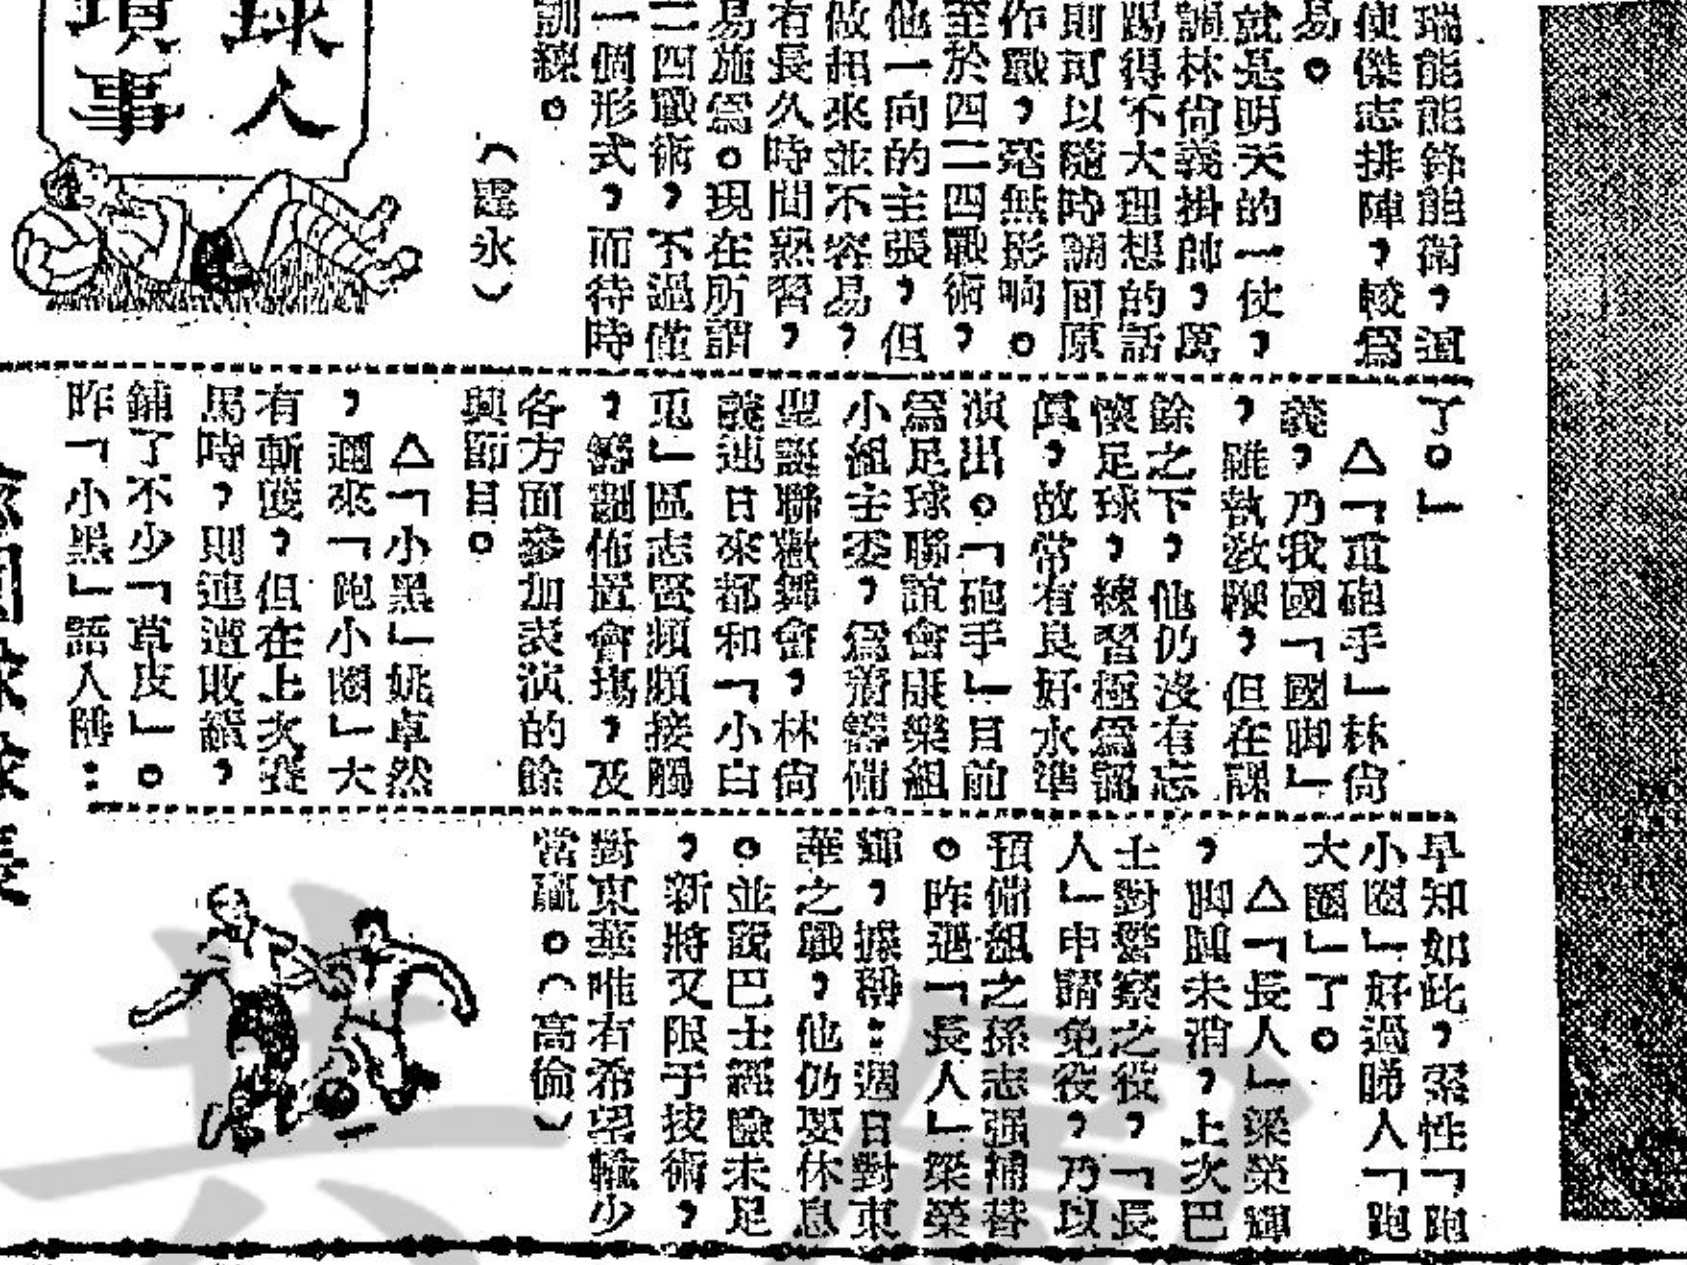 瑞能能鋒能衛，這
使傑志排陣，較爲
易。
就是明天的一仗，
調林尙義掛帥，萬
踢得不大理想的話
則可以隨時調回原
作戰，毫無影响。
至於四二四戰術，
他一向的主張，但
做起來並不容易，
有長久時間熟習，
易施爲。現在所謂
二四戰術，不過僅
一個形式，而待時
訓練。
（靈永）
球人
瑣事
了。」
△「重砲手」林尙
義，乃我國「國脚」
，雖執敎鞭，但在課
餘之下，他仍沒有忘
懷足球，練習極爲認
眞，故常有良好水準
演出。「砲手」目前
爲足球聯誼會康樂組
小組主委，爲着籌備
聖誕聯歡舞會，林尙
義連日來都和「小白
兎」區志賢頻頻接觸
，籌劃佈置會塲，及
各方面參加表演的餘
興節目。
△「小黑」姚卓然
，邇來「跑小圈」大
有斬獲，但在上次賽
馬時，則連遭敗績，
鋪了不少「草皮」。
昨「小黑」語人曰：
早知如此，索性「跑
小圈」好過睇人「跑
大圈」了。
△「長人」梁榮輝
，脚患未消，上次巴
士對警察之役，「長
人」申請免役，乃以
預備組之孫志强補替
。昨遇「長人」梁榮
輝，據稱：週日對東
華之戰，他仍要休息
。並說巴士經驗未足
，新將又限于技術，
對東華唯有希望輸少
當贏。（高偷）